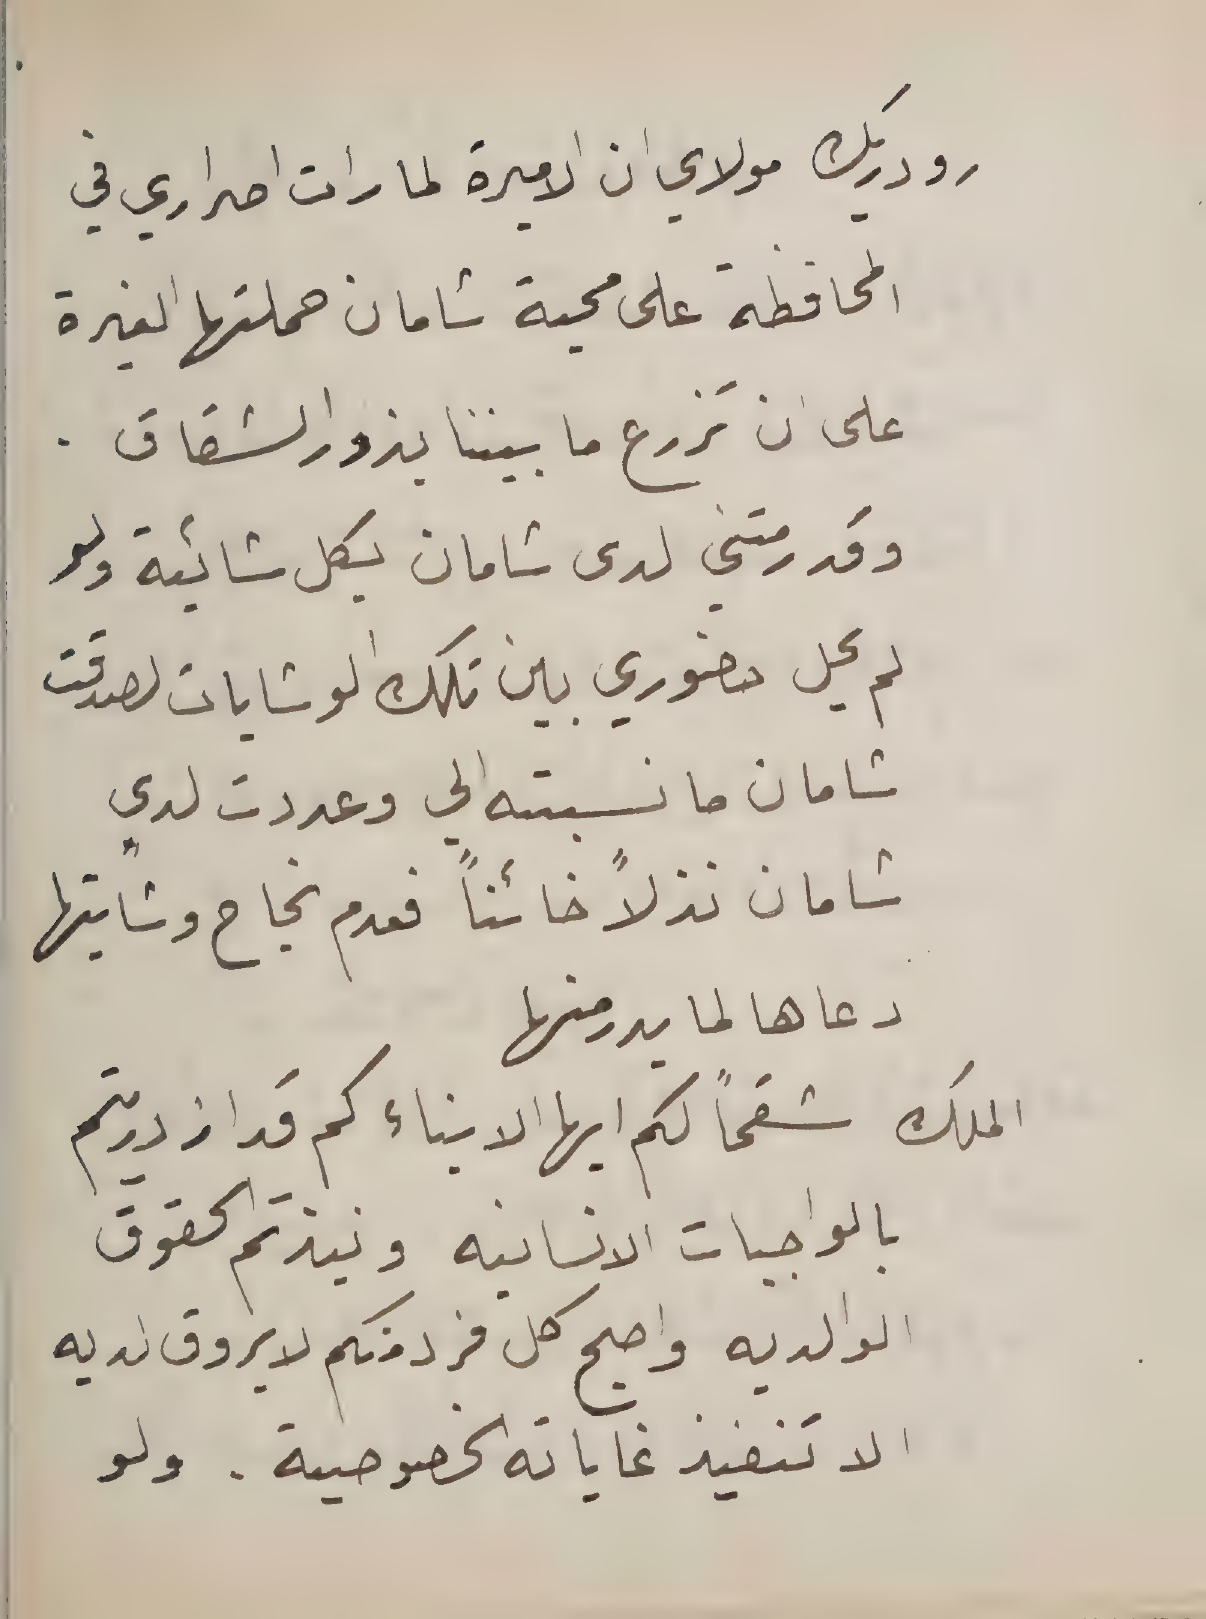 رودريك مولاي ان الاميرة لما رات اصراري في
المحافظة على محبة شامان حملتها الغيرة
على ان تزرع ما بيننا بذور الشقاق .
وقد رمتني لدى شامان بكل شائبة ولو
لم يحل حضوري بين تلك الوشايات لصدقت
شامان ما نسبته الي وعددت لدي
شامان نذلاً خائناً فعدم نجاح وشايتها
دعاها لما بدر منها
الملك شقحاً لكم ايها الابناء كم قد ازدريتم
بالواجبات الانسانيه ونبذتم الحقوق
الوالديه واصبح كل فرد منكم لا يروق لديه
الا تنفيذ غاياته الخصوصية . ولو